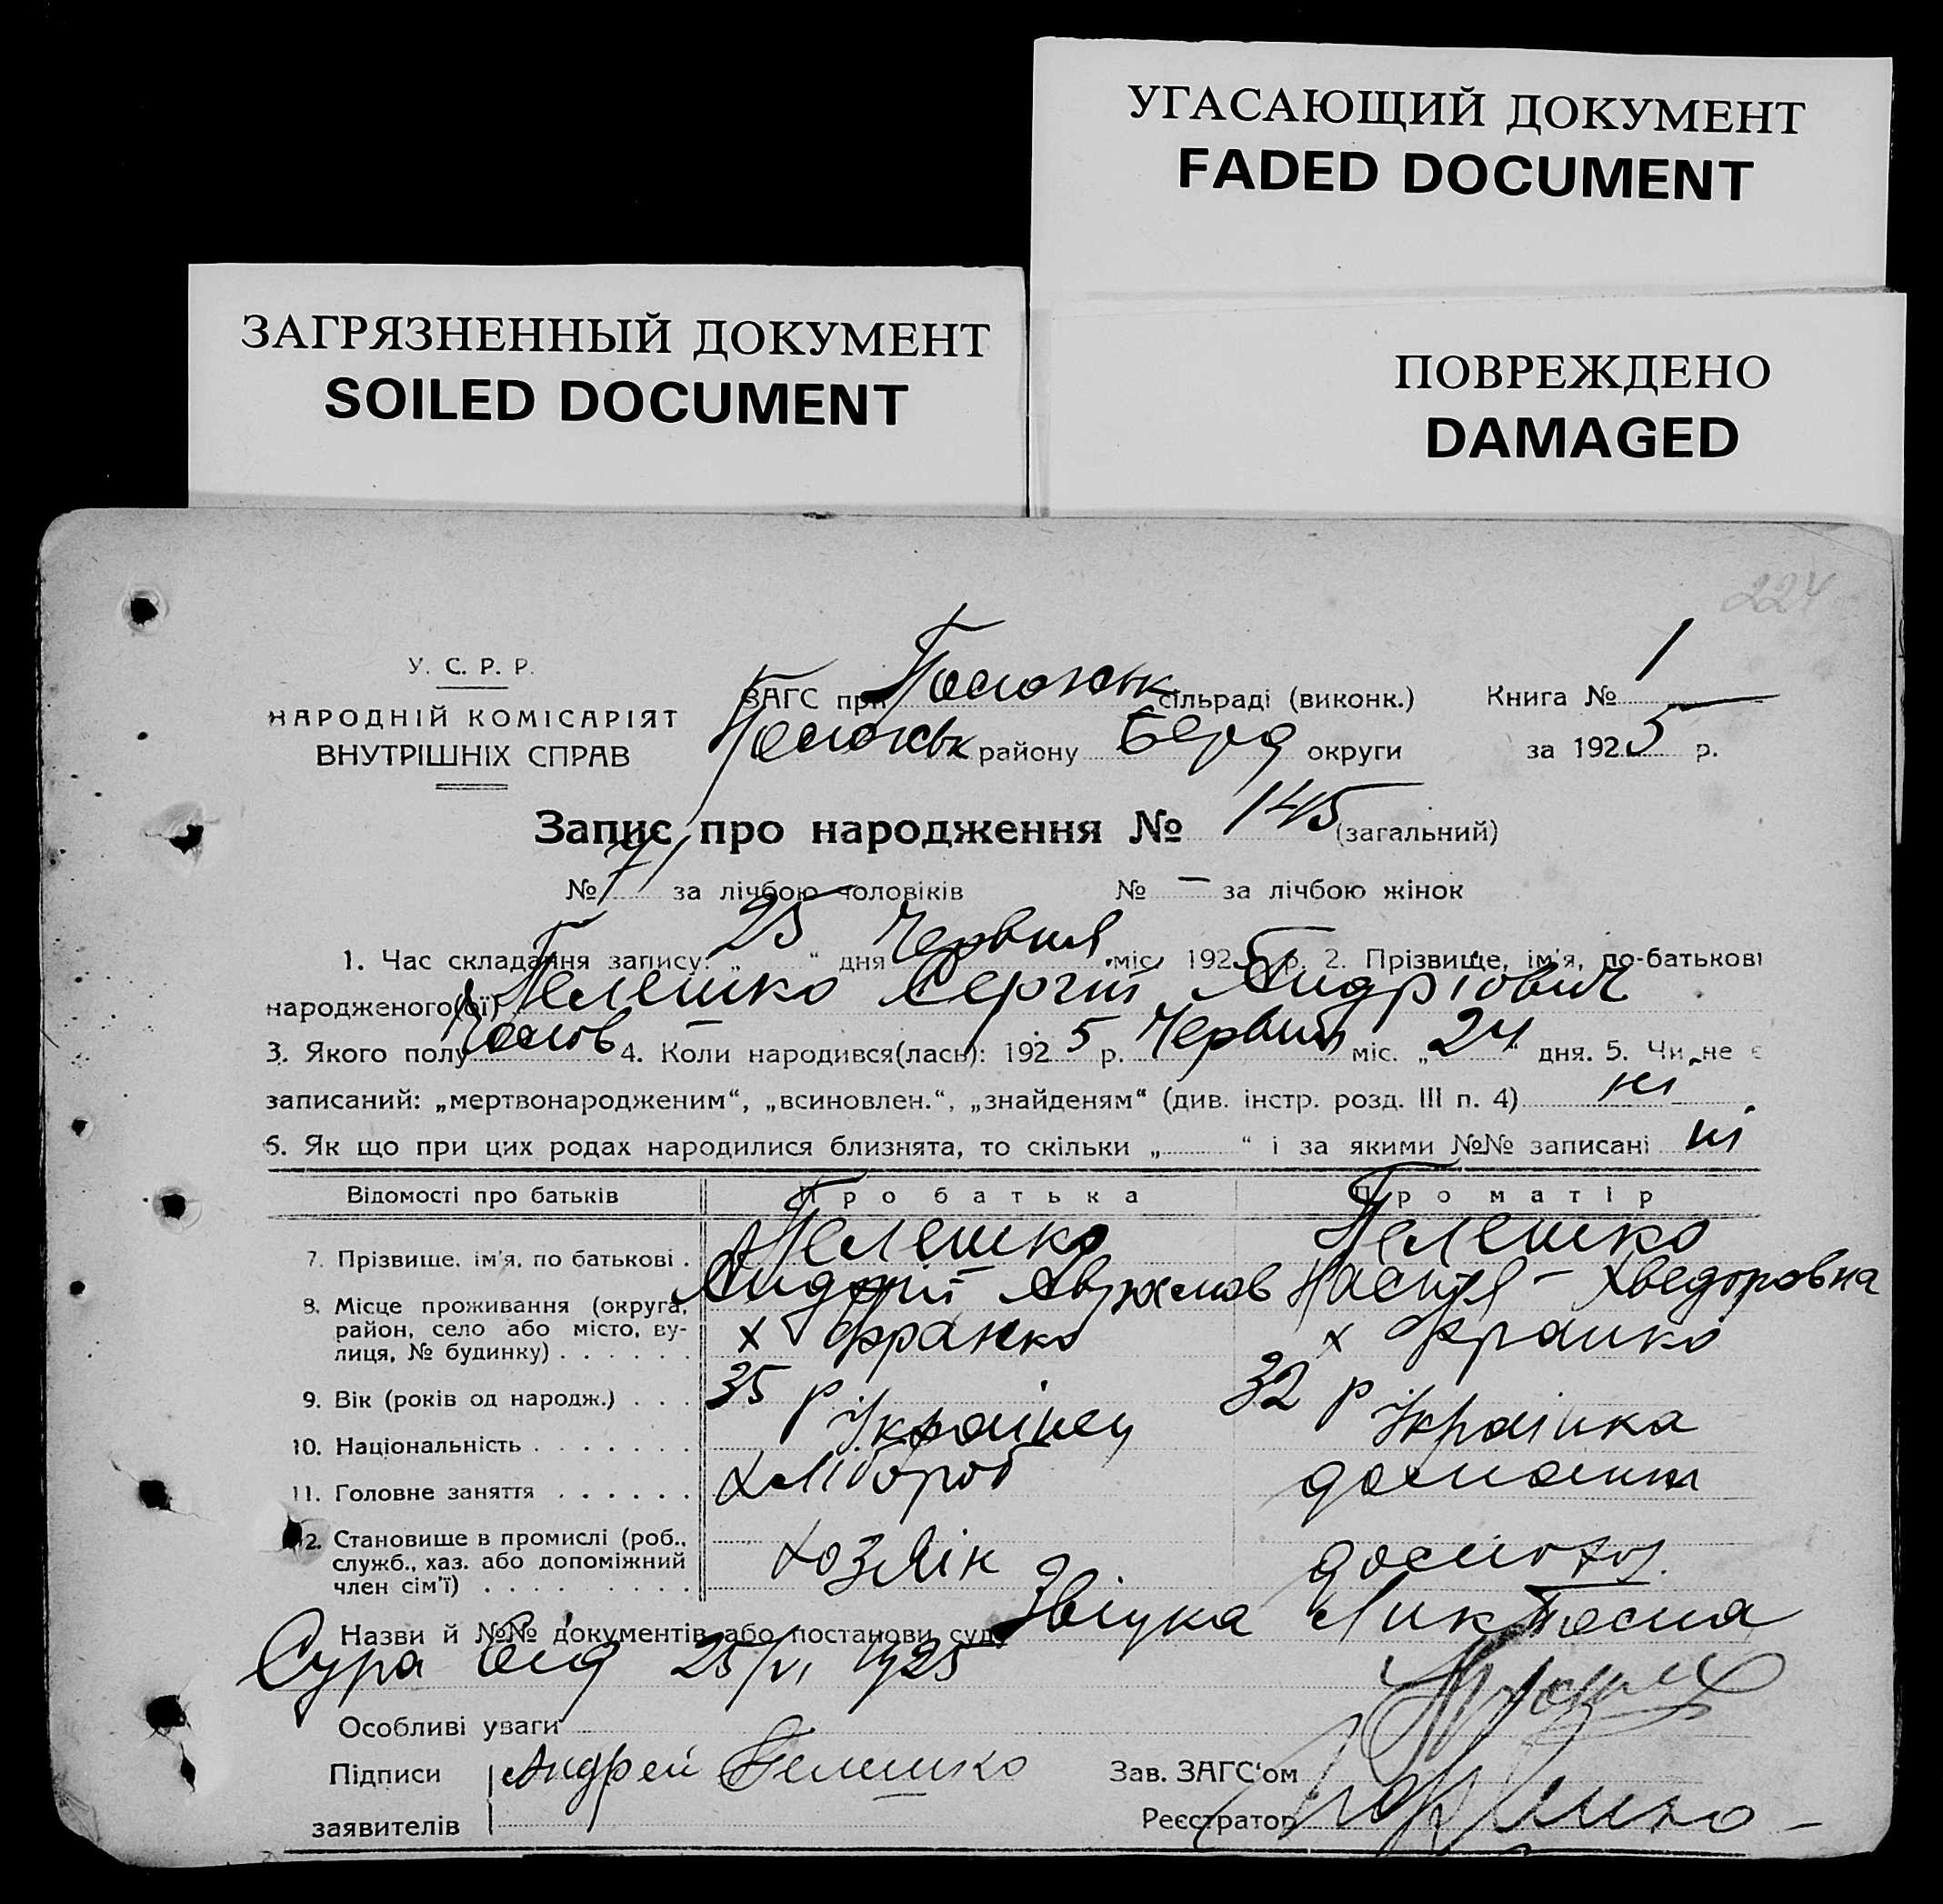 УГАСАЮЩИЙ ДОКУМЕНТ
FADED DOCUMENT
ЗАГРЯЗНЕННЫЙ ДОКУМЕНТ
SOILED DOCUMENT
ПОВРЕЖДЕНО
DAMAGED
224
У. С. Р. Р.
НАРОДНІЙ КОМІСАРІЯТ
ВНУТРІШНІХ СПРАВ
ЗАГС при сільраді (виконк.)
району Берд округи
Книга № 1
за 1925 р.
Запис про народження № 145 (загальний)
№ 71 за лічбою чоловіків № — за лічбою жінок
1. Час складання запису: „ 25 “ дня Червня міс. 1925 р. 2. Прізвище, ім'я, по-батькові
народженого(ої) Телешко Сергій Андріович
3. Якого полу чолов 4. Коли народився(лась): 1925 р. Червня міс. „ 24 “ дня. 5. Чи не є
записаний: „мертвонародженим“, „всиновлен.“, „знайденям“ (див. інстр. розд. III п. 4) ні
6. Як що при цих родах народилися близнята, то скільки „ “ і за якими №№ записані ні
Відомості про батьків Про батька Про матір
7. Прізвище, ім'я, по батькові . Телешко Телешко
Андрій Настя – Хведоровна
8. Місце проживання (округа, район, село або місто, вулиця, № будинку) . . . . . . х Франко х Франко
9. Вік (років од народж.) . . . 35 р 32 р
10. Національність . . . . . . . Українец Українка
11. Головне заняття . . . . . . хлібороб домашня
12. Становище в промислі (роб., служб., хаз. або допоміжний член сім'ї) . . . . . . . . . хозяїн
Назви й №№ документів або постанови суду
від 25/VI 1925
Особливі уваги
Підписи Андрей Телешко Зав. ЗАГС'ом
заявителів Реєстратор